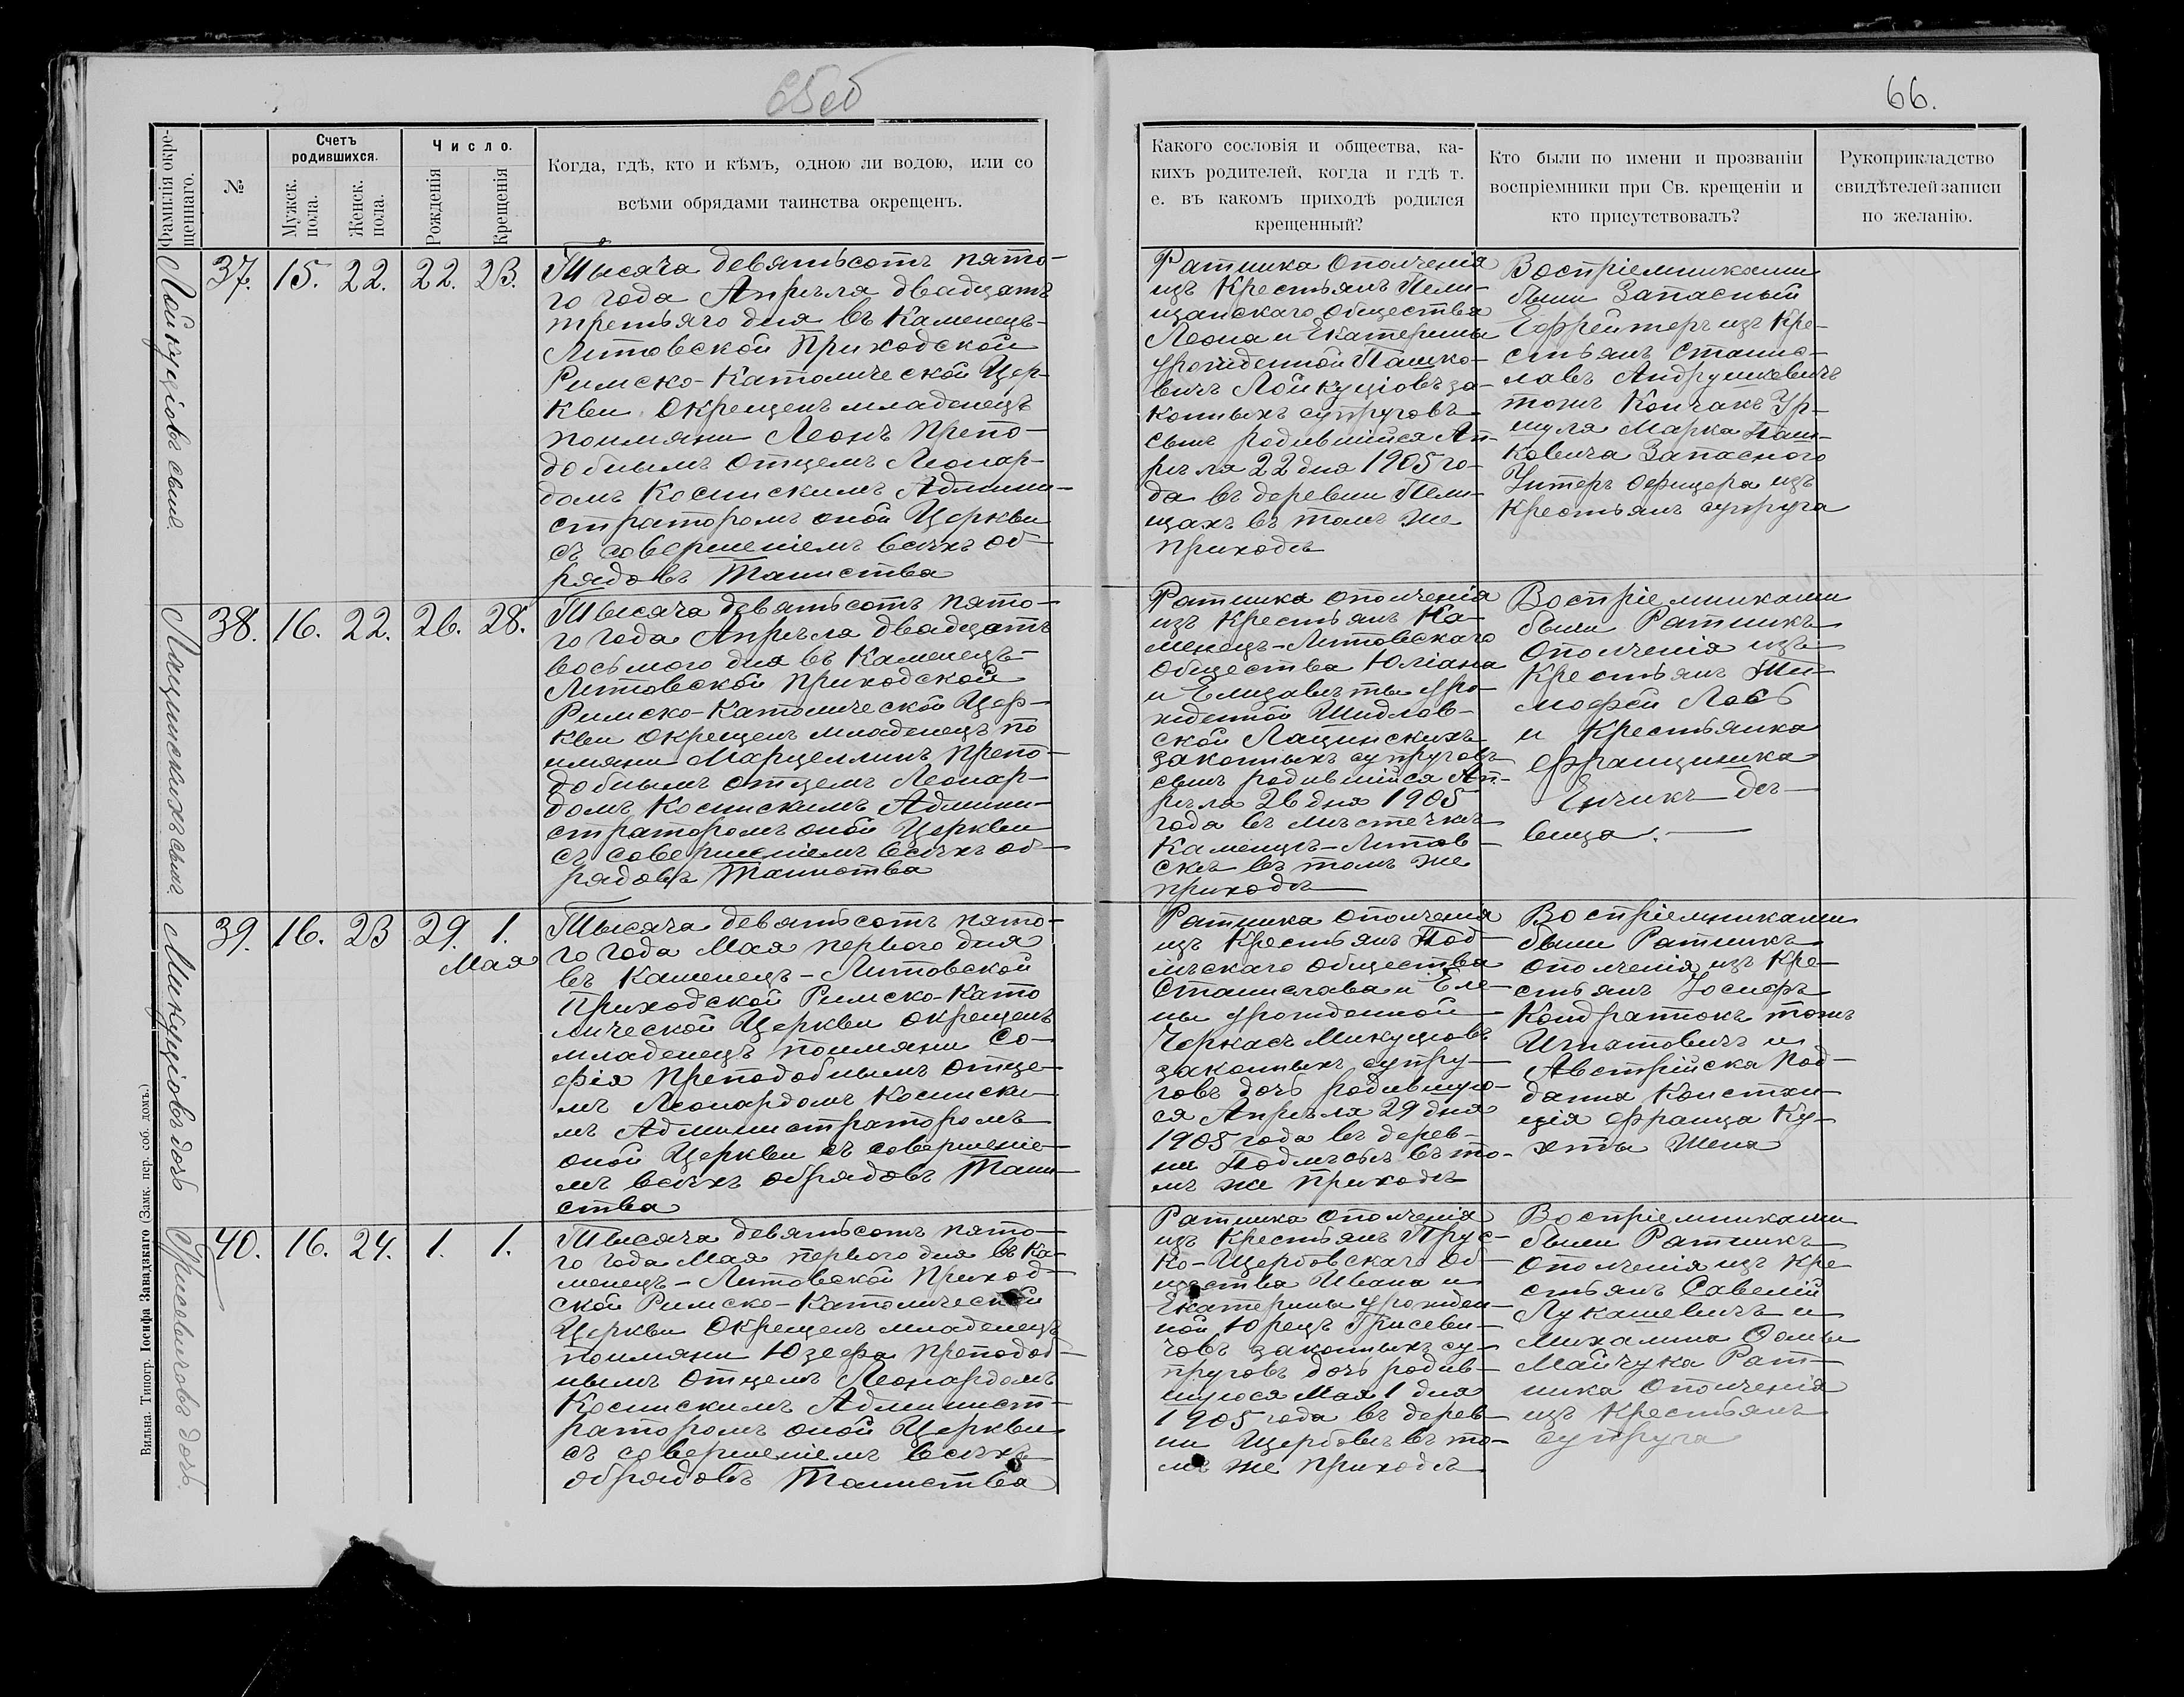 65об
66.
Фамилія окре-
щеннаго.
№
Счетъ
родившихся.
Мужск.
пола.
Женск.
пола.
Число.
Рожденія
Крещенія
Когда, гдѣ, кто и кѣмъ, одною ли водою, или со
всѣми обрядами таинства окрещенъ.
Какого сословія и общества, ка-
кихъ родителей, когда и гдѣ т.
е. въ какомъ приходѣ родился
крещенный?
Кто были по имени и прозваніи
воспріемники при Св. крещеніи и
кто присутствовалъ?
Рукоприкладство
свидѣтелей записи
по желанію.
Лойкуціовъ сынъ.
37. 15. 22. 22. 23.
Тысяча девятьсотъ пято-
го года Апрѣля двадцать
третьяго дня въ Каменецъ-
Литовской Приходской
Римско-Католической Цер-
кви окрещенъ младенецъ
поимяни Леонъ Препо-
добнымъ Отцемъ Леонар-
домъ Косинскимъ Админи-
страторомъ оной Церкви
съ совершеніемъ всѣхъ об-
рядовъ Таинства
Ратника Ополченія
изъ Крестьянъ Пели-
щанскаго Общества
Леона и Екатерины
урожденной Пашко-
вичъ Лойкуціовъ за-
конныхъ супруговъ
сынъ родившійся Ап-
рѣля 22 дня 1905 го-
да въ деревни Пели-
щахъ въ томъ же
приходѣ
Воспріемниками
были Запасный
Ефрейтеръ изъ Кре-
стьянъ Станис-
лавъ Андрушкевичъ
тожъ Кончакъ Ур-
шуля Марка Паш-
ковича Запасного
Унтеръ Офицера изъ
Крестьянъ супруга
Лацинскихъ сынъ.
38. 16. 22. 26. 28.
Тысяча девятьсотъ пято-
го года Апрѣля двадцать
восьмого дня въ Каменецъ-
Литовской Приходской
Римско-Католической Цер-
кви окрещенъ младенецъ по
имяни Марцеллинъ Препо-
добнымъ Отцемъ Леонар-
домъ Косинскимъ Админи-
страторомъ оной Церкви
съ совершеніемъ всѣхъ об-
рядовъ Таинства
Ратника ополченія
изъ Крестьянъ Ка-
менецъ-Литовскаго
Общества Юліана
и Елизаветы уро-
жденной Шидлов-
ской Лацинскихъ
законныхъ супруговъ
сынъ родившійся Ап-
рѣля 26 дня 1905
года въ мѣстечкѣ
Каменцъ-Литов-
скѣ въ томъ же
приходѣ
Воспріемниками
были Ратникъ
Ополченія изъ
Крестьянъ Ти-
мофей
и Крестьянка
Францишка
дѣ-
вица.
Микуціовъ дочь
39. 16. 23 29. 1.
Мая
Тысяча девятьсотъ пято-
го года Мая перваго дня
въ Каменецъ-Литовской
Приходской Римско-Като
лической Церкви окрещенъ
младенецъ поимяни Со-
фія Преподобнымъ Отце-
мъ Леонардомъ Косински-
мъ Администраторомъ
оной Церкви съ совершеніе-
мъ всѣхъ обрядовъ Таин-
ства
Ратника ополченія
изъ Крестьянъ Под-
лѣскаго Общества
Станислава и Еле-
ны урожденной
Черкасъ Микуціовъ
законныхъ супру-
говъ дочь родившую-
ся Апрѣля 29 дня
1905 года въ дерев-
ни въ то-
мъ же приходѣ
Воспріемниками
были Ратникъ
ополченія изъ Кре-
стьянъ Іосифъ
Кондратюкъ тожъ
Игнатовичъ и
Австрійска Под-
данна Констан-
ція Франца Ку-
хты Жена
Грисевичовъ дочь.
40. 16. 24. 1. 1.
Тысяча девятьсотъ пято-
го года Мая перваго дня въ Ка-
менецъ-Литовской Приход-
ской Римско-Католической
Церкви Окрещенъ младенецъ
поимяни Юзефа Преподоб-
нымъ Отцемъ Леонардомъ
Косинскимъ Админист-
раторомъ оной Церкви
съ совершеніемъ всѣхъ
обрядовъ Таинства
Ратника ополченія
изъ Крестьянъ Прус-
ко-Щербовскаго Об-
щества Ивана и
Екатерины урожден-
ной Юрецъ Грисеви-
човъ законныхъ су-
пруговъ дочь родив-
шуюся Мая 1 дня
1905 года въ дерев-
ни Щербовѣ въ то-
мъ же приходѣ
Воспріемниками
были Ратникъ
ополченія изъ Кре
стьянъ Савелій
Лукашевичъ и
Михалина Ѳомы
Майчука Рат-
ника Ополченія
изъ Крестьянъ
супруга
Вильна. Типогр. Іосифа Завадзкаго (Замк. пер. соб. домъ.)